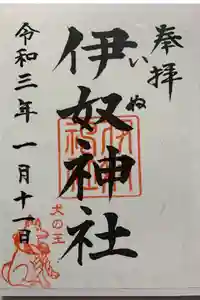 奉拝
伊奴神社
いぬ
犬の王
令和三年一月十一日